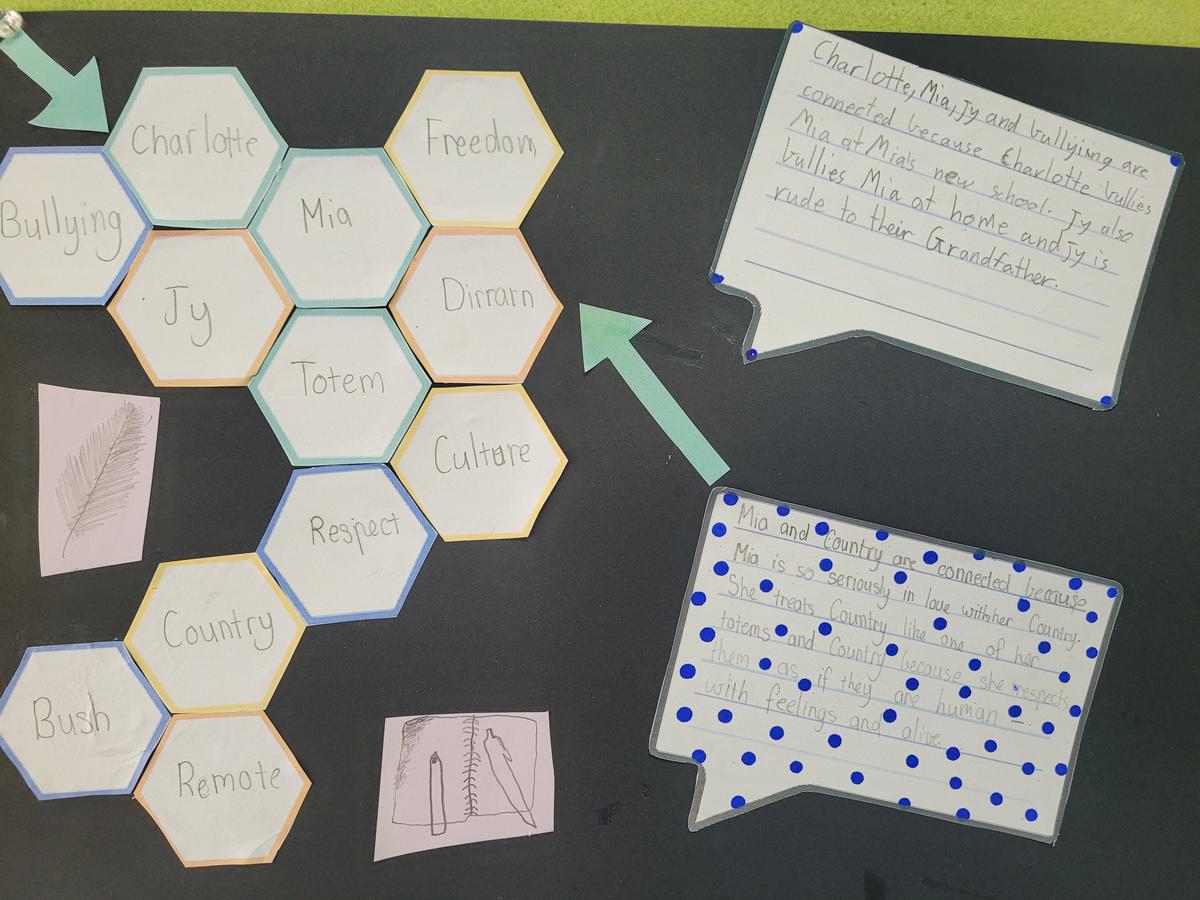 Charlotte
Freedom
Bullying
Mia
Jy
Dirrarn
Totem
Culture
Respect
Country
Bush
Remote
Charlotte, Mia, Jy and bullying are
connected because Charlotte bullies
Mia at Mia's new school. Jy also
bullies Mia at home and Jy is
rude to their Grandfather.
Mia and Country are connected because
Mia is so seriously in love withher Country.
She treats Country like one of her
totems and Country because she respects
them as if they are human
with feelings and alive.